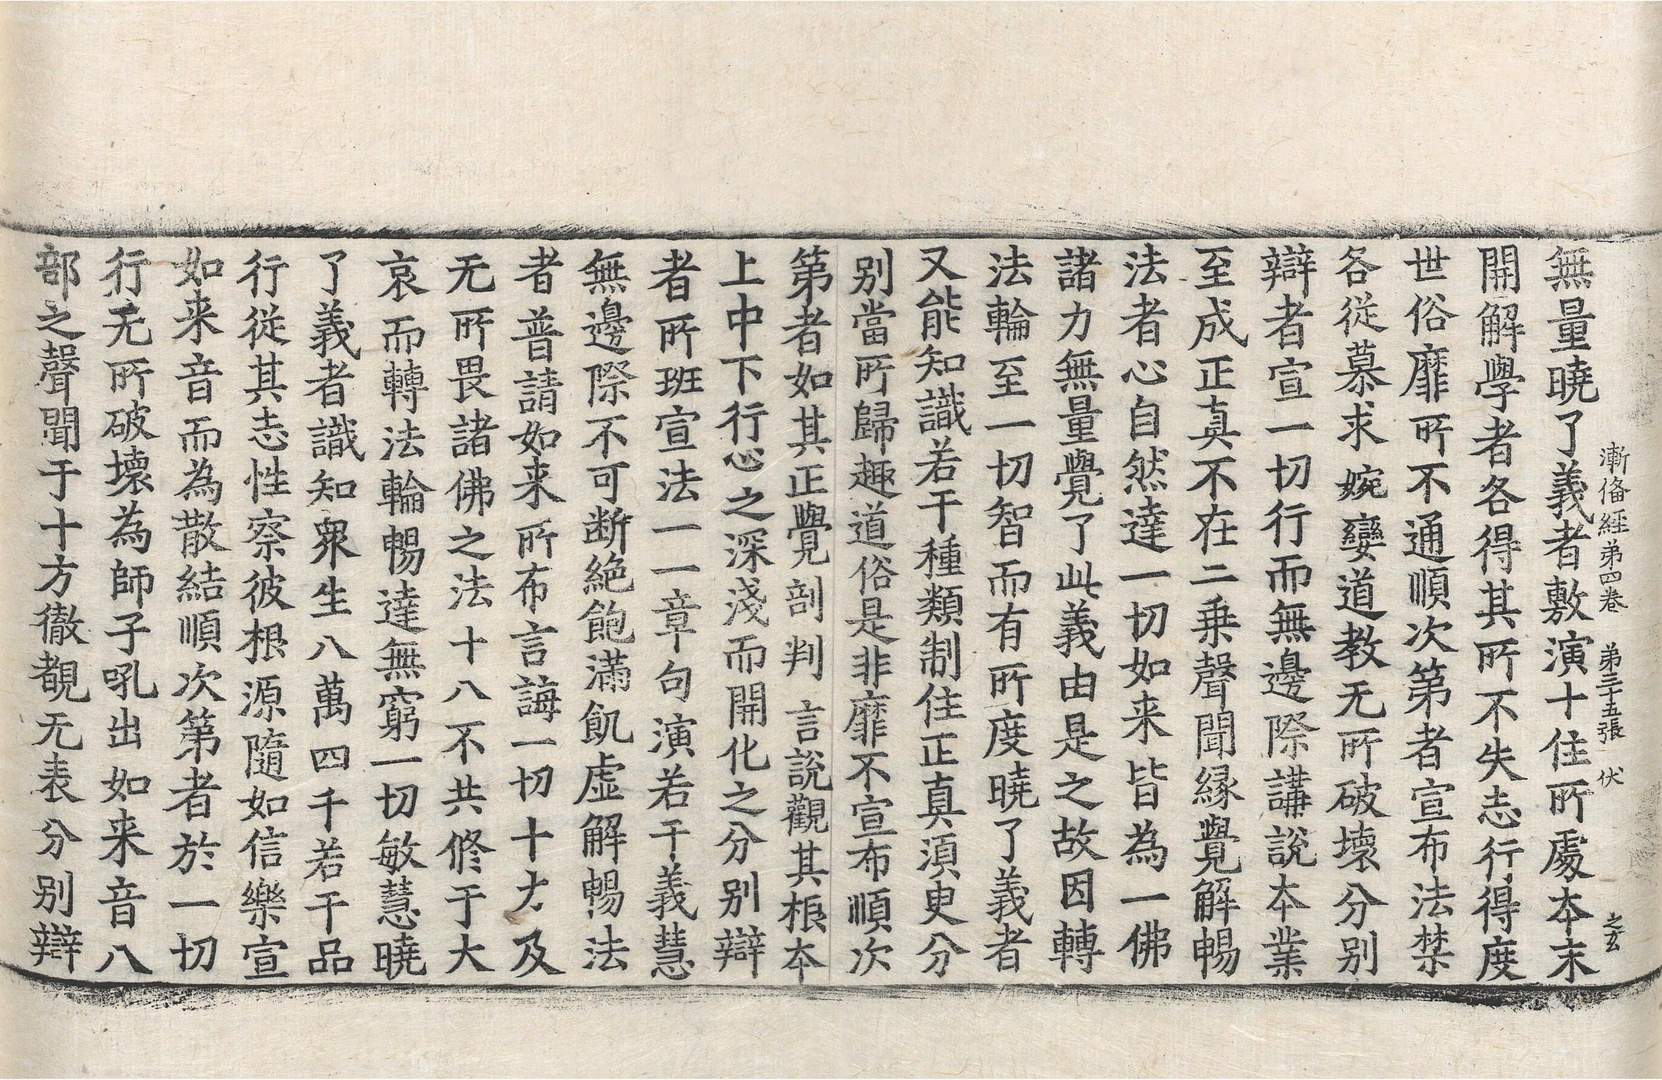 漸備經第四卷　第三十五張　伏
之玄
無量曉了義者敷演十住所處夲末
開解學者各得其所不失志行得度
世俗靡所不通順次第者宣布法禁
各從慕求婉孌道教无所破壞分別
辯者宣一切行而無邊際講說夲業
至成正真不在二乗聲聞縁覺解暢
法者心自然達一切如来皆為一佛
諸力無量覺了此義由是之故因轉
法輪至一切智而有所度曉了義者
又能知識若干種類制住正真湏臾分
別當所歸趣道俗是非靡不宣布順次
第者如其正覺剖判言說觀其根夲
上中下行心之深淺而開化之分別辯
者所班宣法一一章句演若干義慧
無邊際不可断絶飽滿飢虛解暢法
者普請如来所布言誨一切十力及
无所畏諸佛之法十八不共修于大
哀而轉法輪暢達無窮一切敏慧曉
了義者識知衆生八萬四千若干品
行從其志性察彼根源隨如信樂宣
如来音而為散結順次第者於一切
行无所破壞為師子吼出如来音八
部之聲聞于十方徹覩无表分別辯